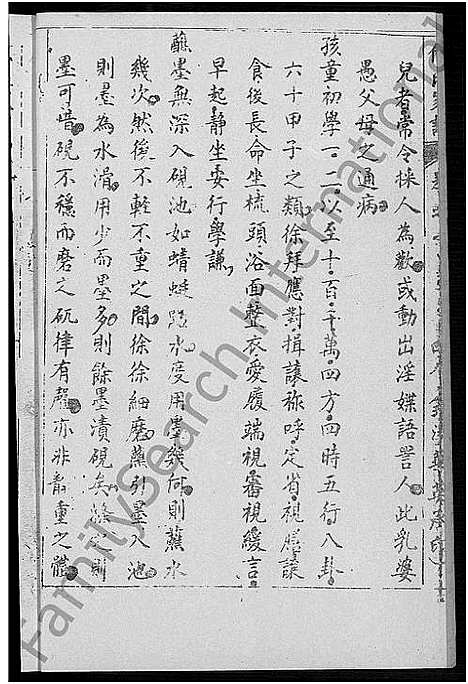 兒者常令採人為歡或動出淫媟語詈人此乳婆
愚父母之通病
孩童初學一二以至十百千萬四方四時五行八卦
六十甲子之類徐拜應對揖讓称呼定省視膳讓
食後長命坐梳頭浴面整衣愛履端視審視緩言
早起靜坐安行學謙
蘸墨無深入硯池如蜻蜓點水度用墨幾何則蘸水
幾次然後不輕不重之間徐徐細磨蘸引墨入池
則墨為水滑用少而墨多則餘墨漬硯矣滌之則
墨可惜硯不穩而磨之砊硉有聲亦非嚴重之體
FamilySearch International